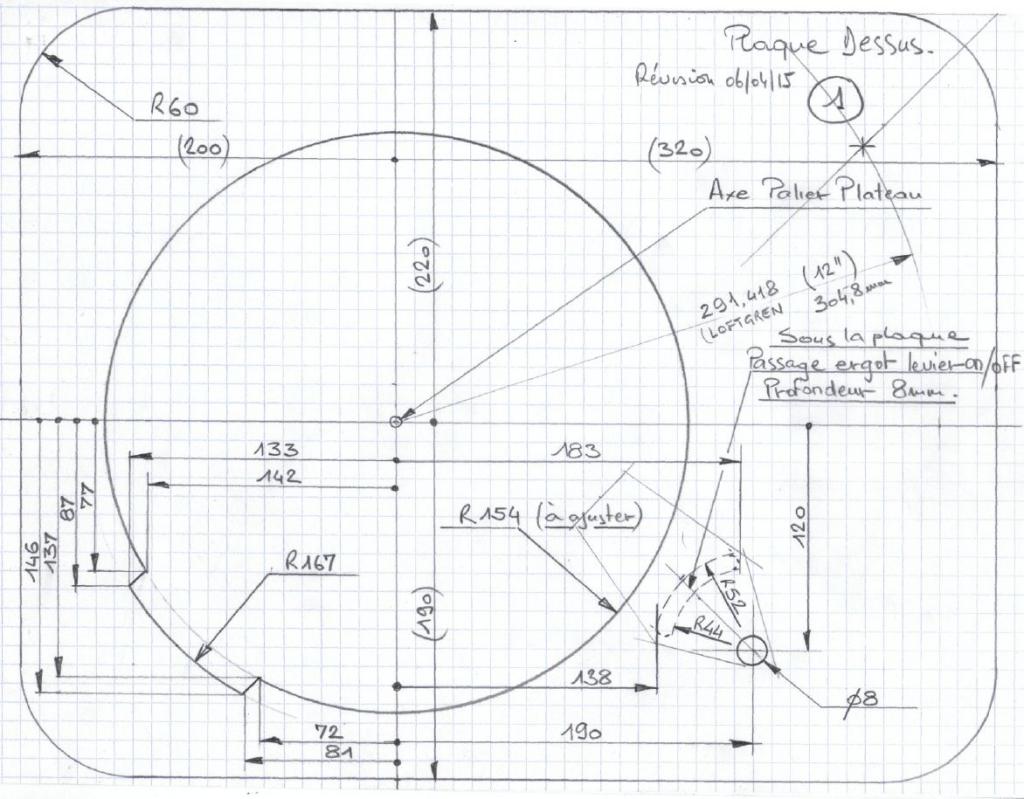 Plaque Dessus.
Révision 06/04/15
1
R60
(200)
(320)
Axe Palier Plateau
(220)
291,418 (12")
(LOFTGREN 304,8mm
Sous la plaque
Passage ergot levier on/OFF
Profondeur 8mm.
133
183
142
87
77
R154 (à ajuster)
120
146
137
R167
R52
(190)
R44
138
Ø8
72
190
81